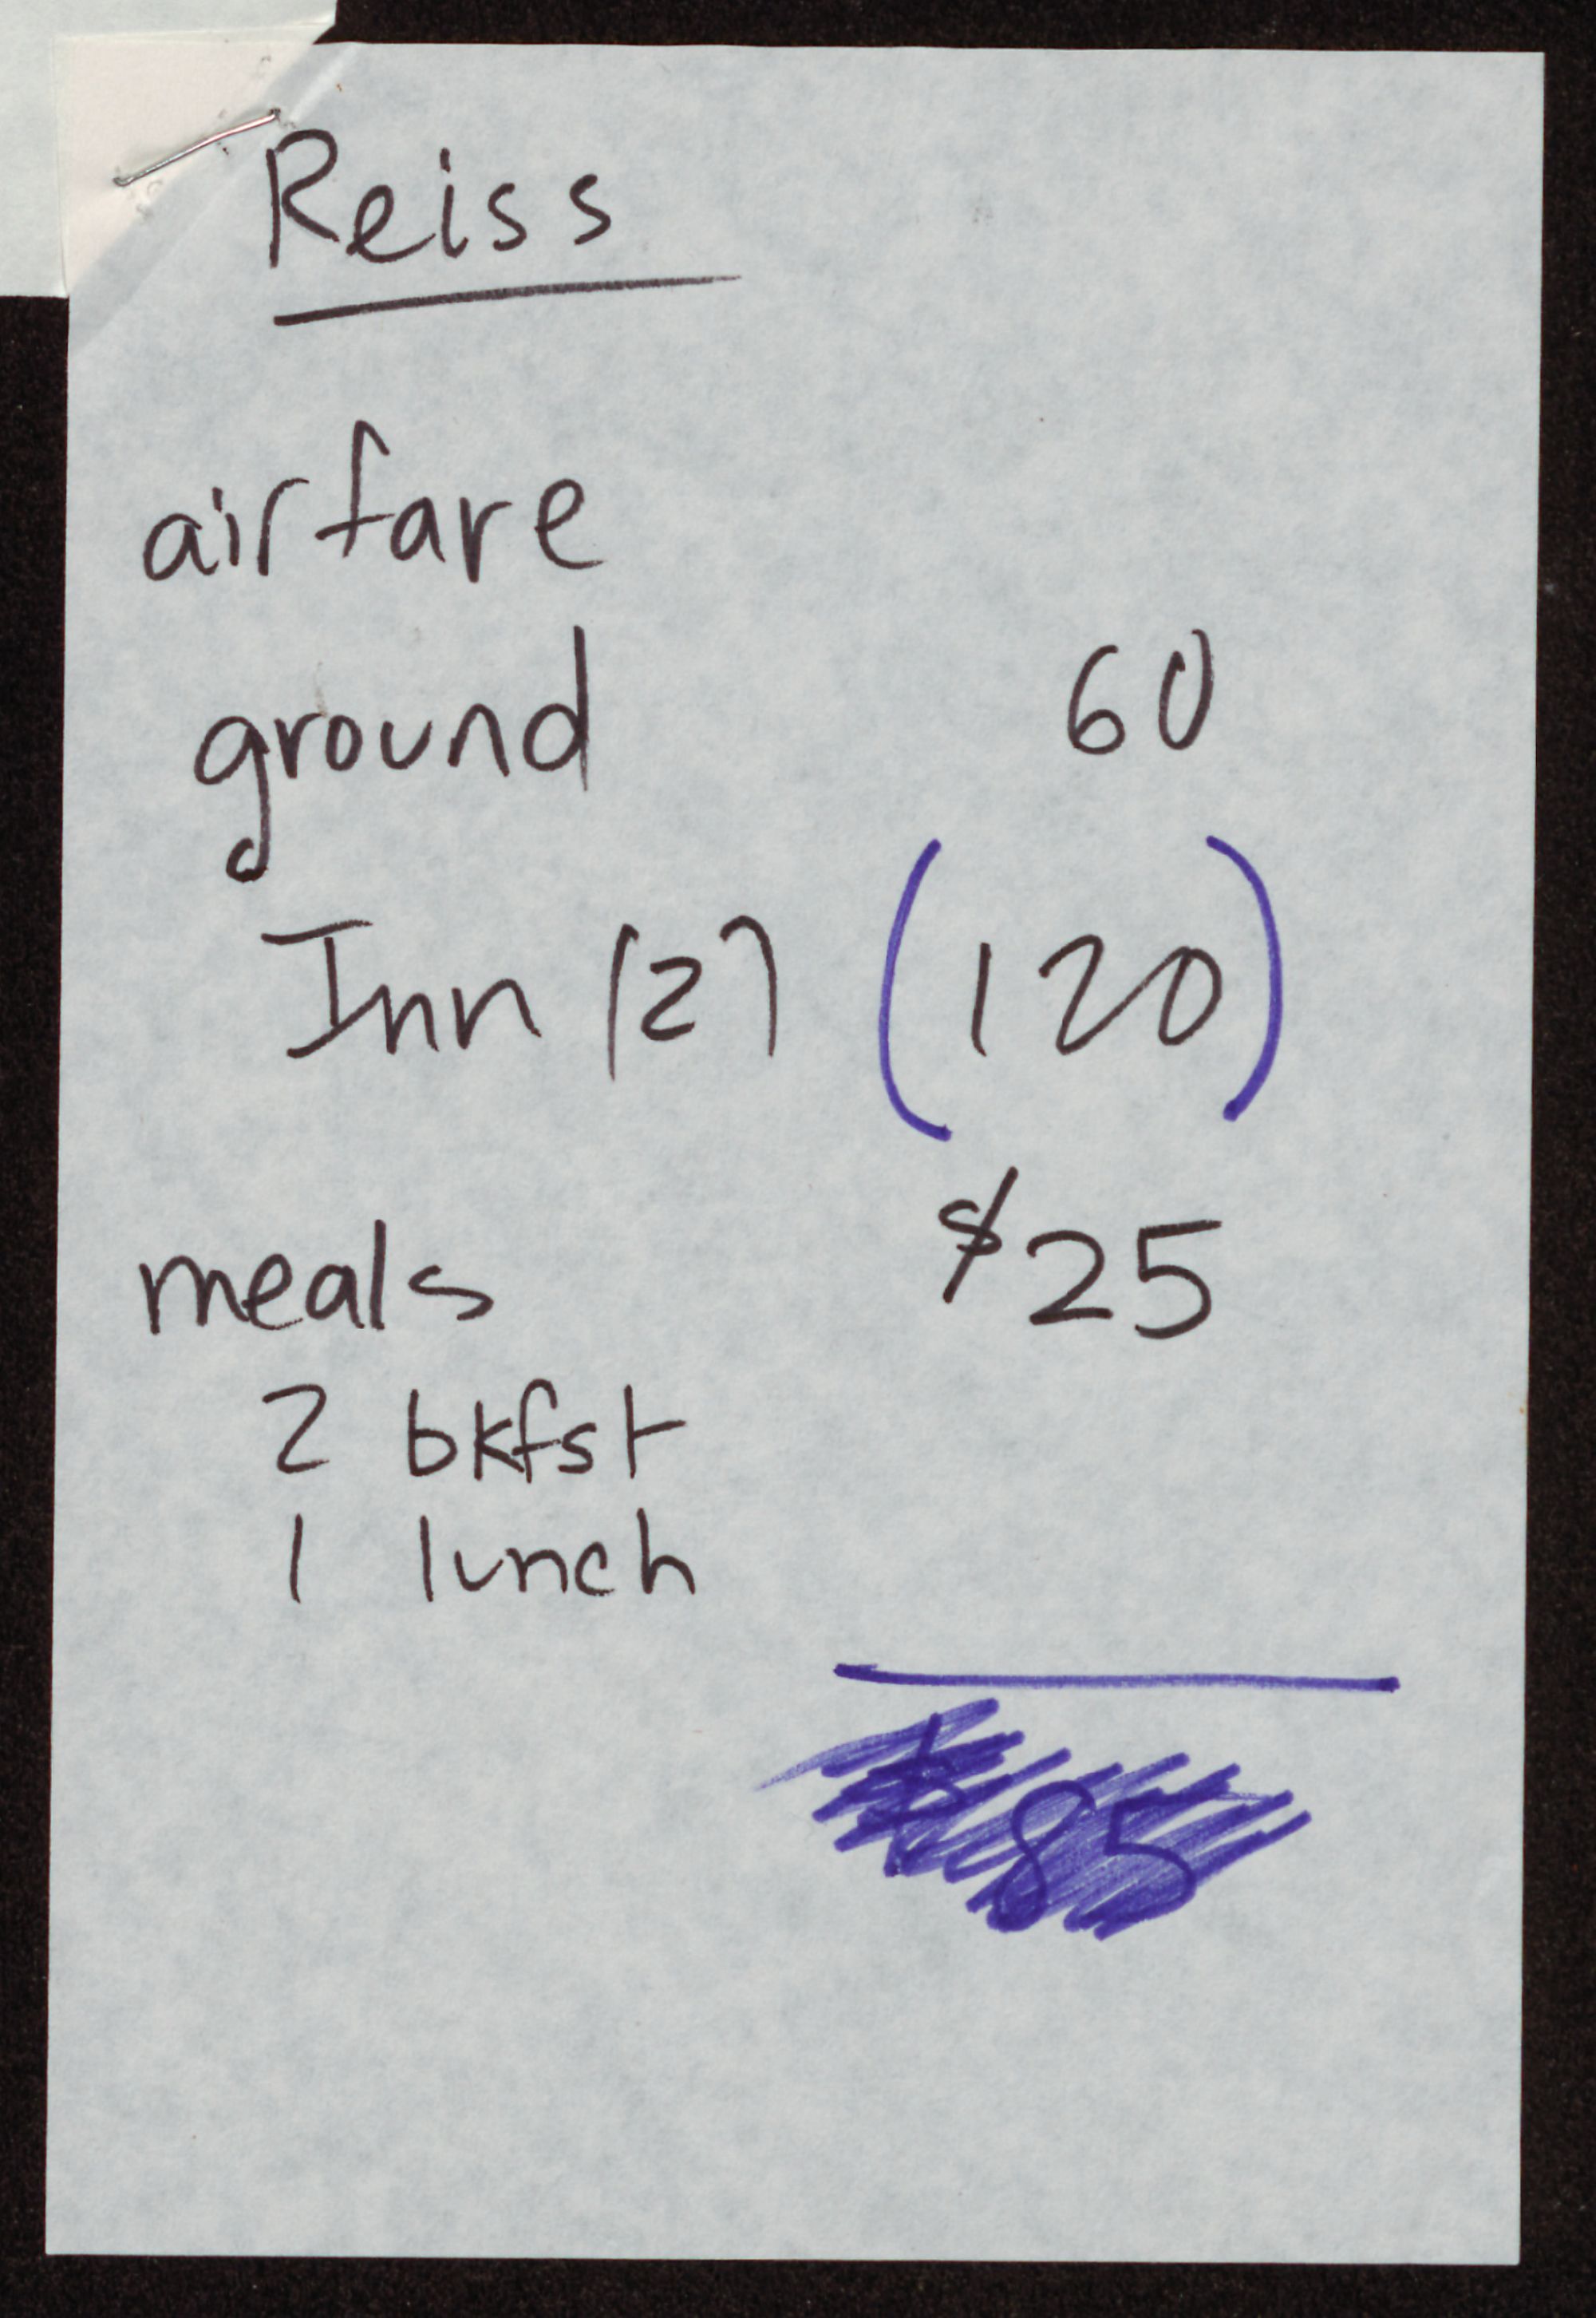 Reiss
airfare
ground 60
Inn (2) (120)
meals $25
2 bkfst
1 lunch
$85